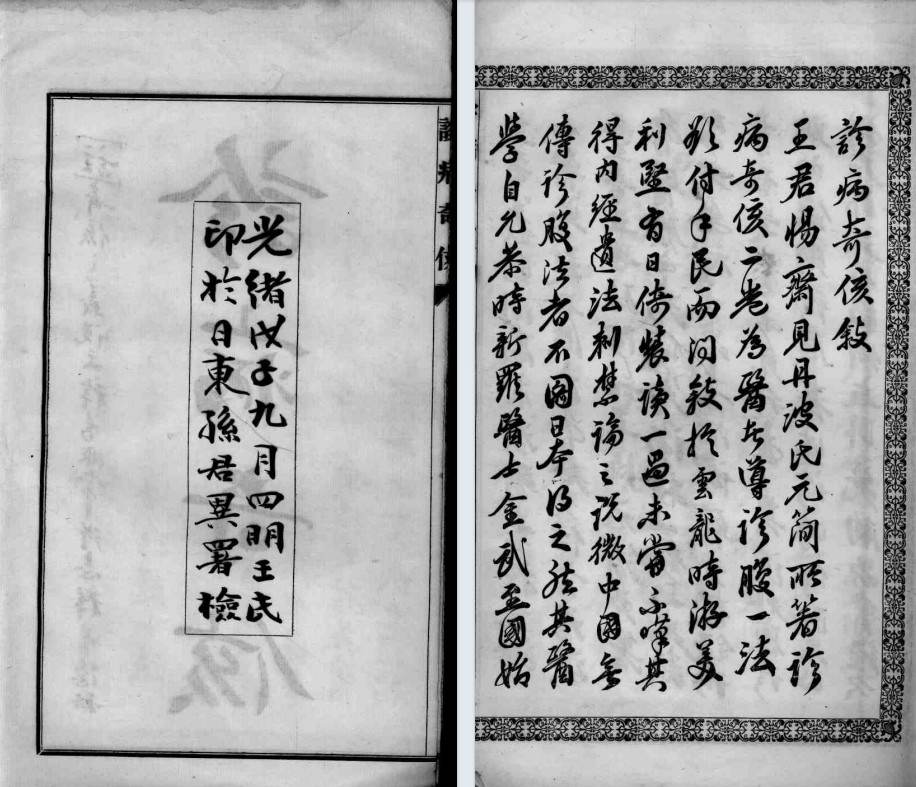 診病奇侅敘
王君惕齋見丹波氏元簡所著診
病奇侅二卷為醫者導診腹一法
欲付手民而問敘於雲龍時游美
利堅有日倚裝讀一過未嘗不嘆其
得內經遺法刺禁論之說微中國無
傳診腹法者不圖日本得之然其醫
學自允恭時新羅醫士金武至國始
診病奇侅
光緒戊子九月四明王氏
印於日東孫君異署檢